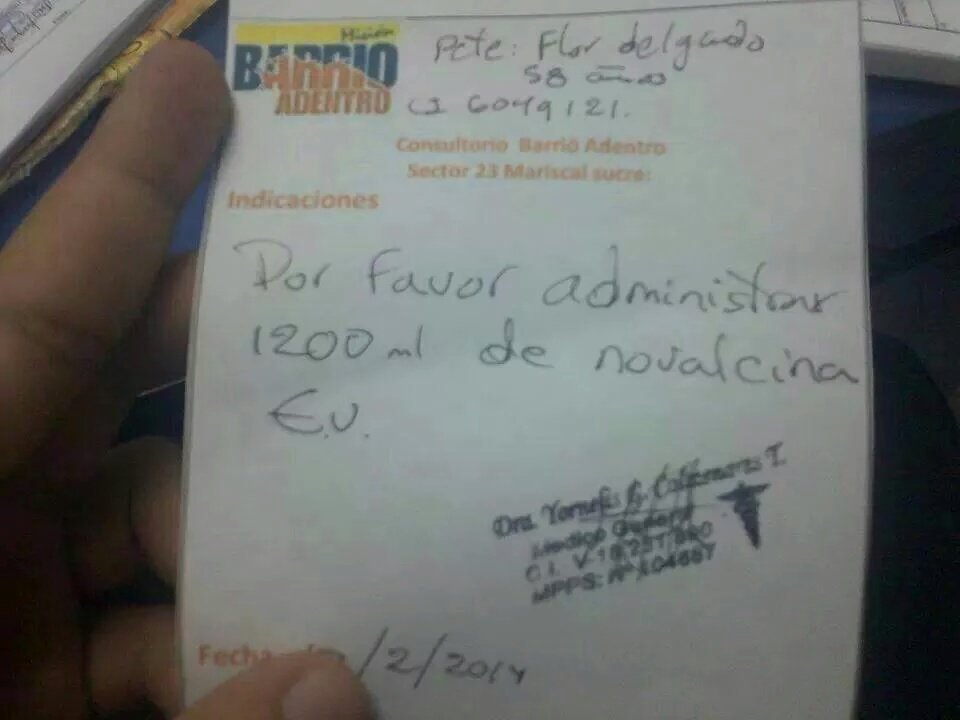 Misión
BARRIO
ADENTRO
Pcte: Flor delgado
58 años
CI 6049121.
Consultorio Barrio Adentro
Sector 23 Mariscal sucre:
Indicaciones
Por favor administrar
1200 ml de novalcina
E.V.
Dra.
Medico General
C.I. V-
MPPS:
Fecha /2/2014